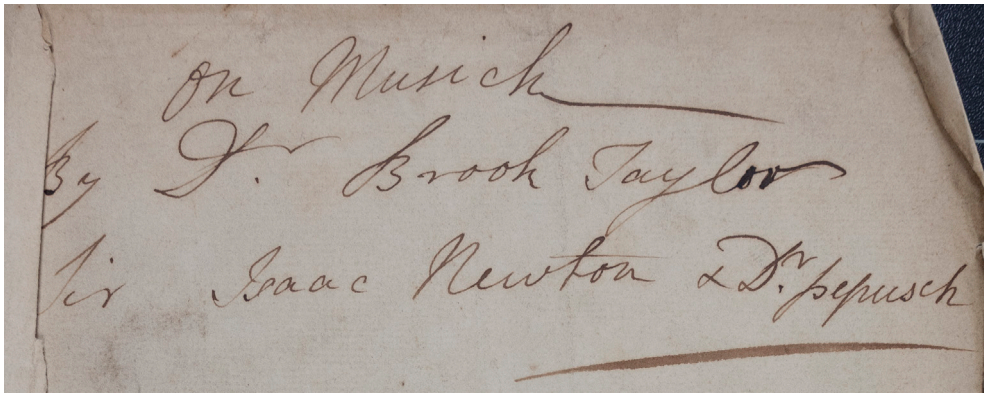 On Musick
By Dr. Brook Taylor
Sir Isaac Newton & Dr. Pepusch